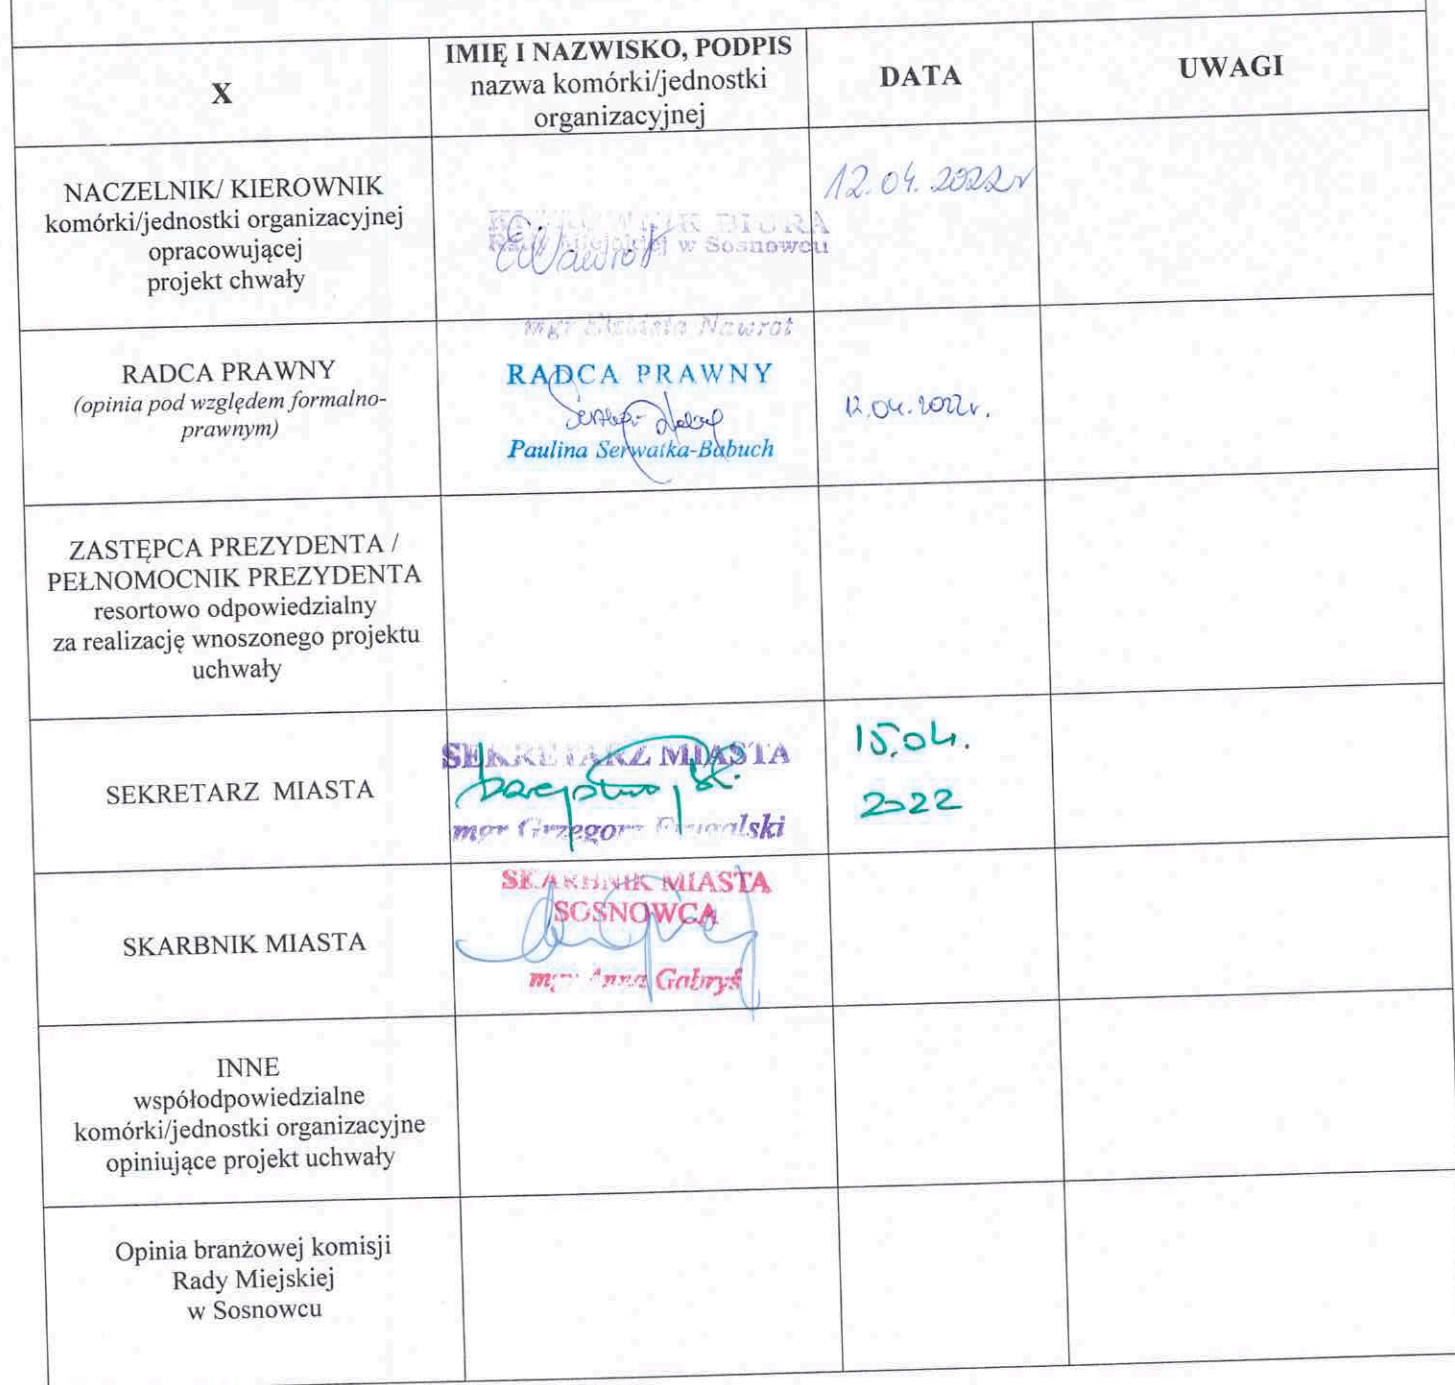 X
IMIĘ I NAZWISKO, PODPIS
nazwa komórki/jednostki
organizacyjnej
DATA
UWAGI
NACZELNIK/ KIEROWNIK
komórki/jednostki organizacyjnej
opracowującej
projekt chwały
KIEROWNIK BIURA
Rady Miejskiej w Sosnowcu
mgr Elżbieta Nawrot
12.04.2022r
RADCA PRAWNY
(opinia pod względem formalno-
prawnym)
RADCA PRAWNY
Paulina Serwatka-Babuch
12.04.2022r.
ZASTĘPCA PREZYDENTA /
PEŁNOMOCNIK PREZYDENTA
resortowo odpowiedzialny
za realizację wnoszonego projektu
uchwały
SEKRETARZ MIASTA
SEKRETARZ MIASTA
mgr Grzegorz
15.04.
2022
SKARBNIK MIASTA
SKARBNIK MIASTA
SOSNOWCA
mgr Anna Gabryś
INNE
współodpowiedzialne
komórki/jednostki organizacyjne
opiniujące projekt uchwały
Opinia branżowej komisji
Rady Miejskiej
w Sosnowcu